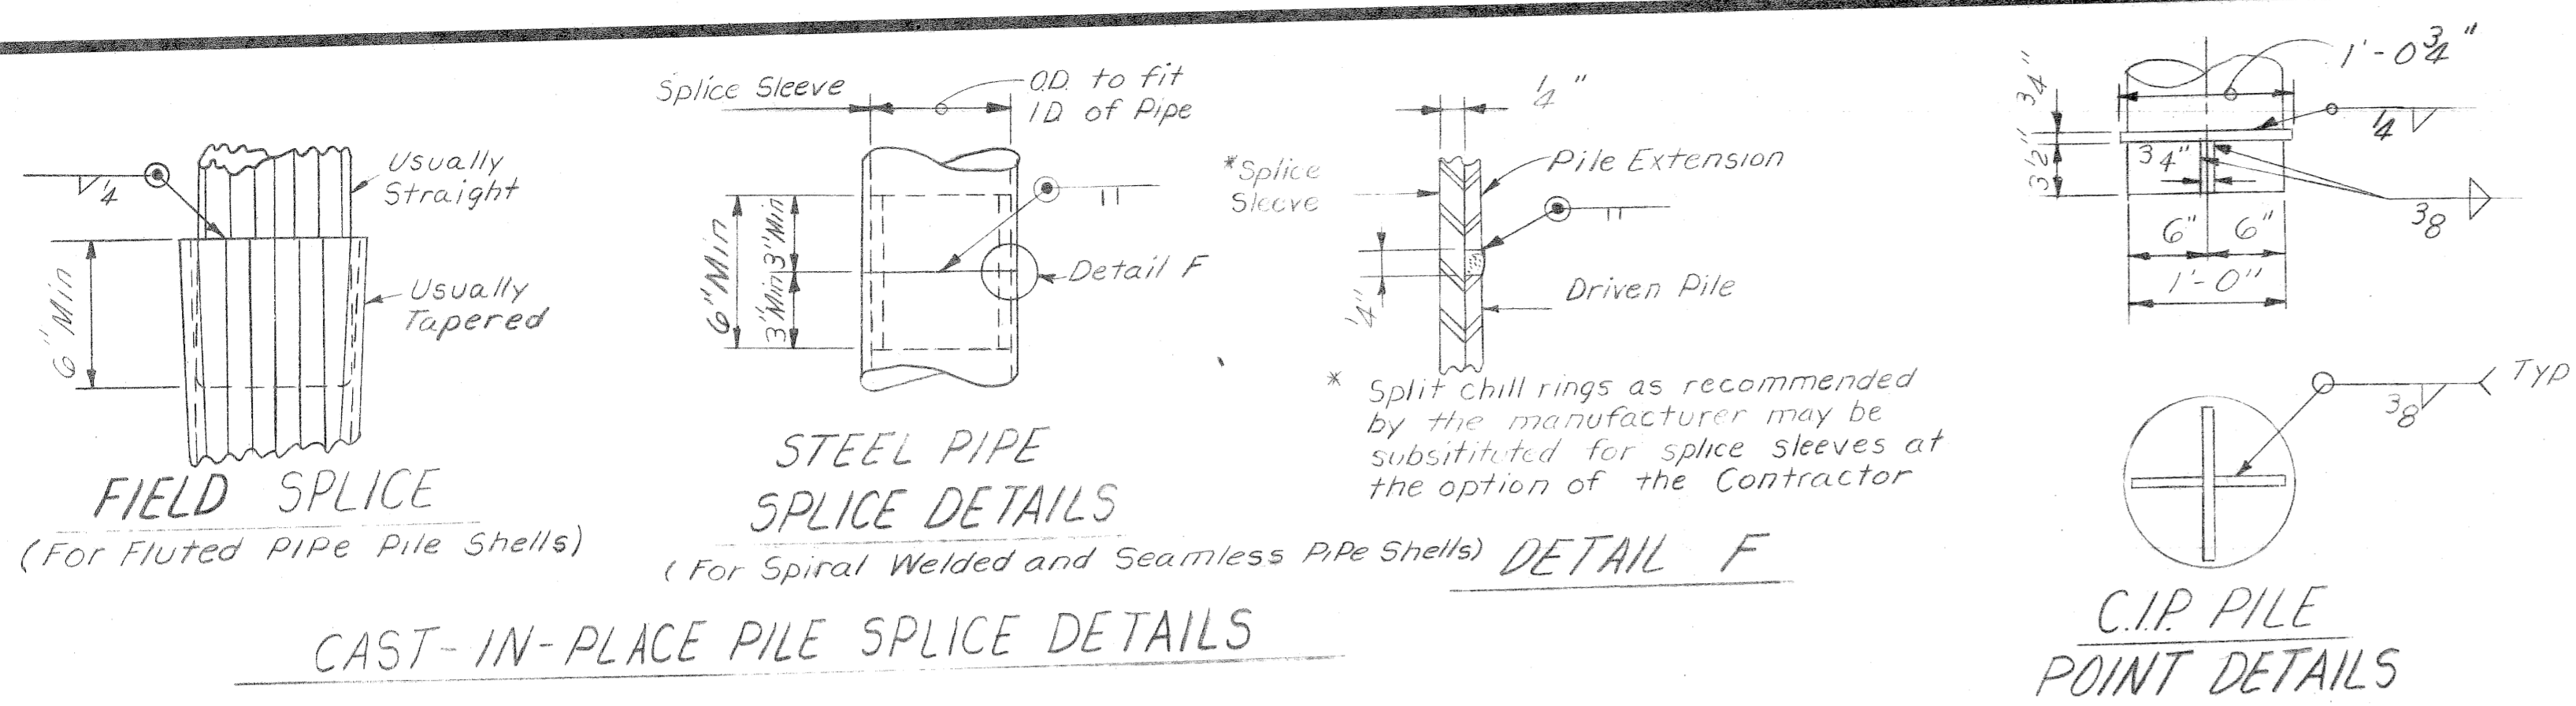 1/4
Usually
Straight
6" Min
Usually
Tapered
FIELD SPLICE
(For Fluted PIPe Pile Shells)
Splice Sleeve
O.D. to fit
I.D. of Pipe
6" Min
3" Min
3" Min
Detail F
STEEL PIPE
SPLICE DETAILS
(For Spiral Welded and Seamless PiPe Shells)
1/4"
*Splice
Sleeve
Pile Extension
1/4"
Driven Pile
* Split chill rings as recommended
by the manufacturer may be
subsitituted for splice sleeves at
the option of the Contractor
DETAIL F
CAST-IN-PLACE PILE SPLICE DETAILS
1'-0 3/4"
3/4"
1/4
3 1/2"
3/4"
3/8
6" 6"
1'-0"
Typ
3/8
C.I.P. PILE
POINT DETAILS